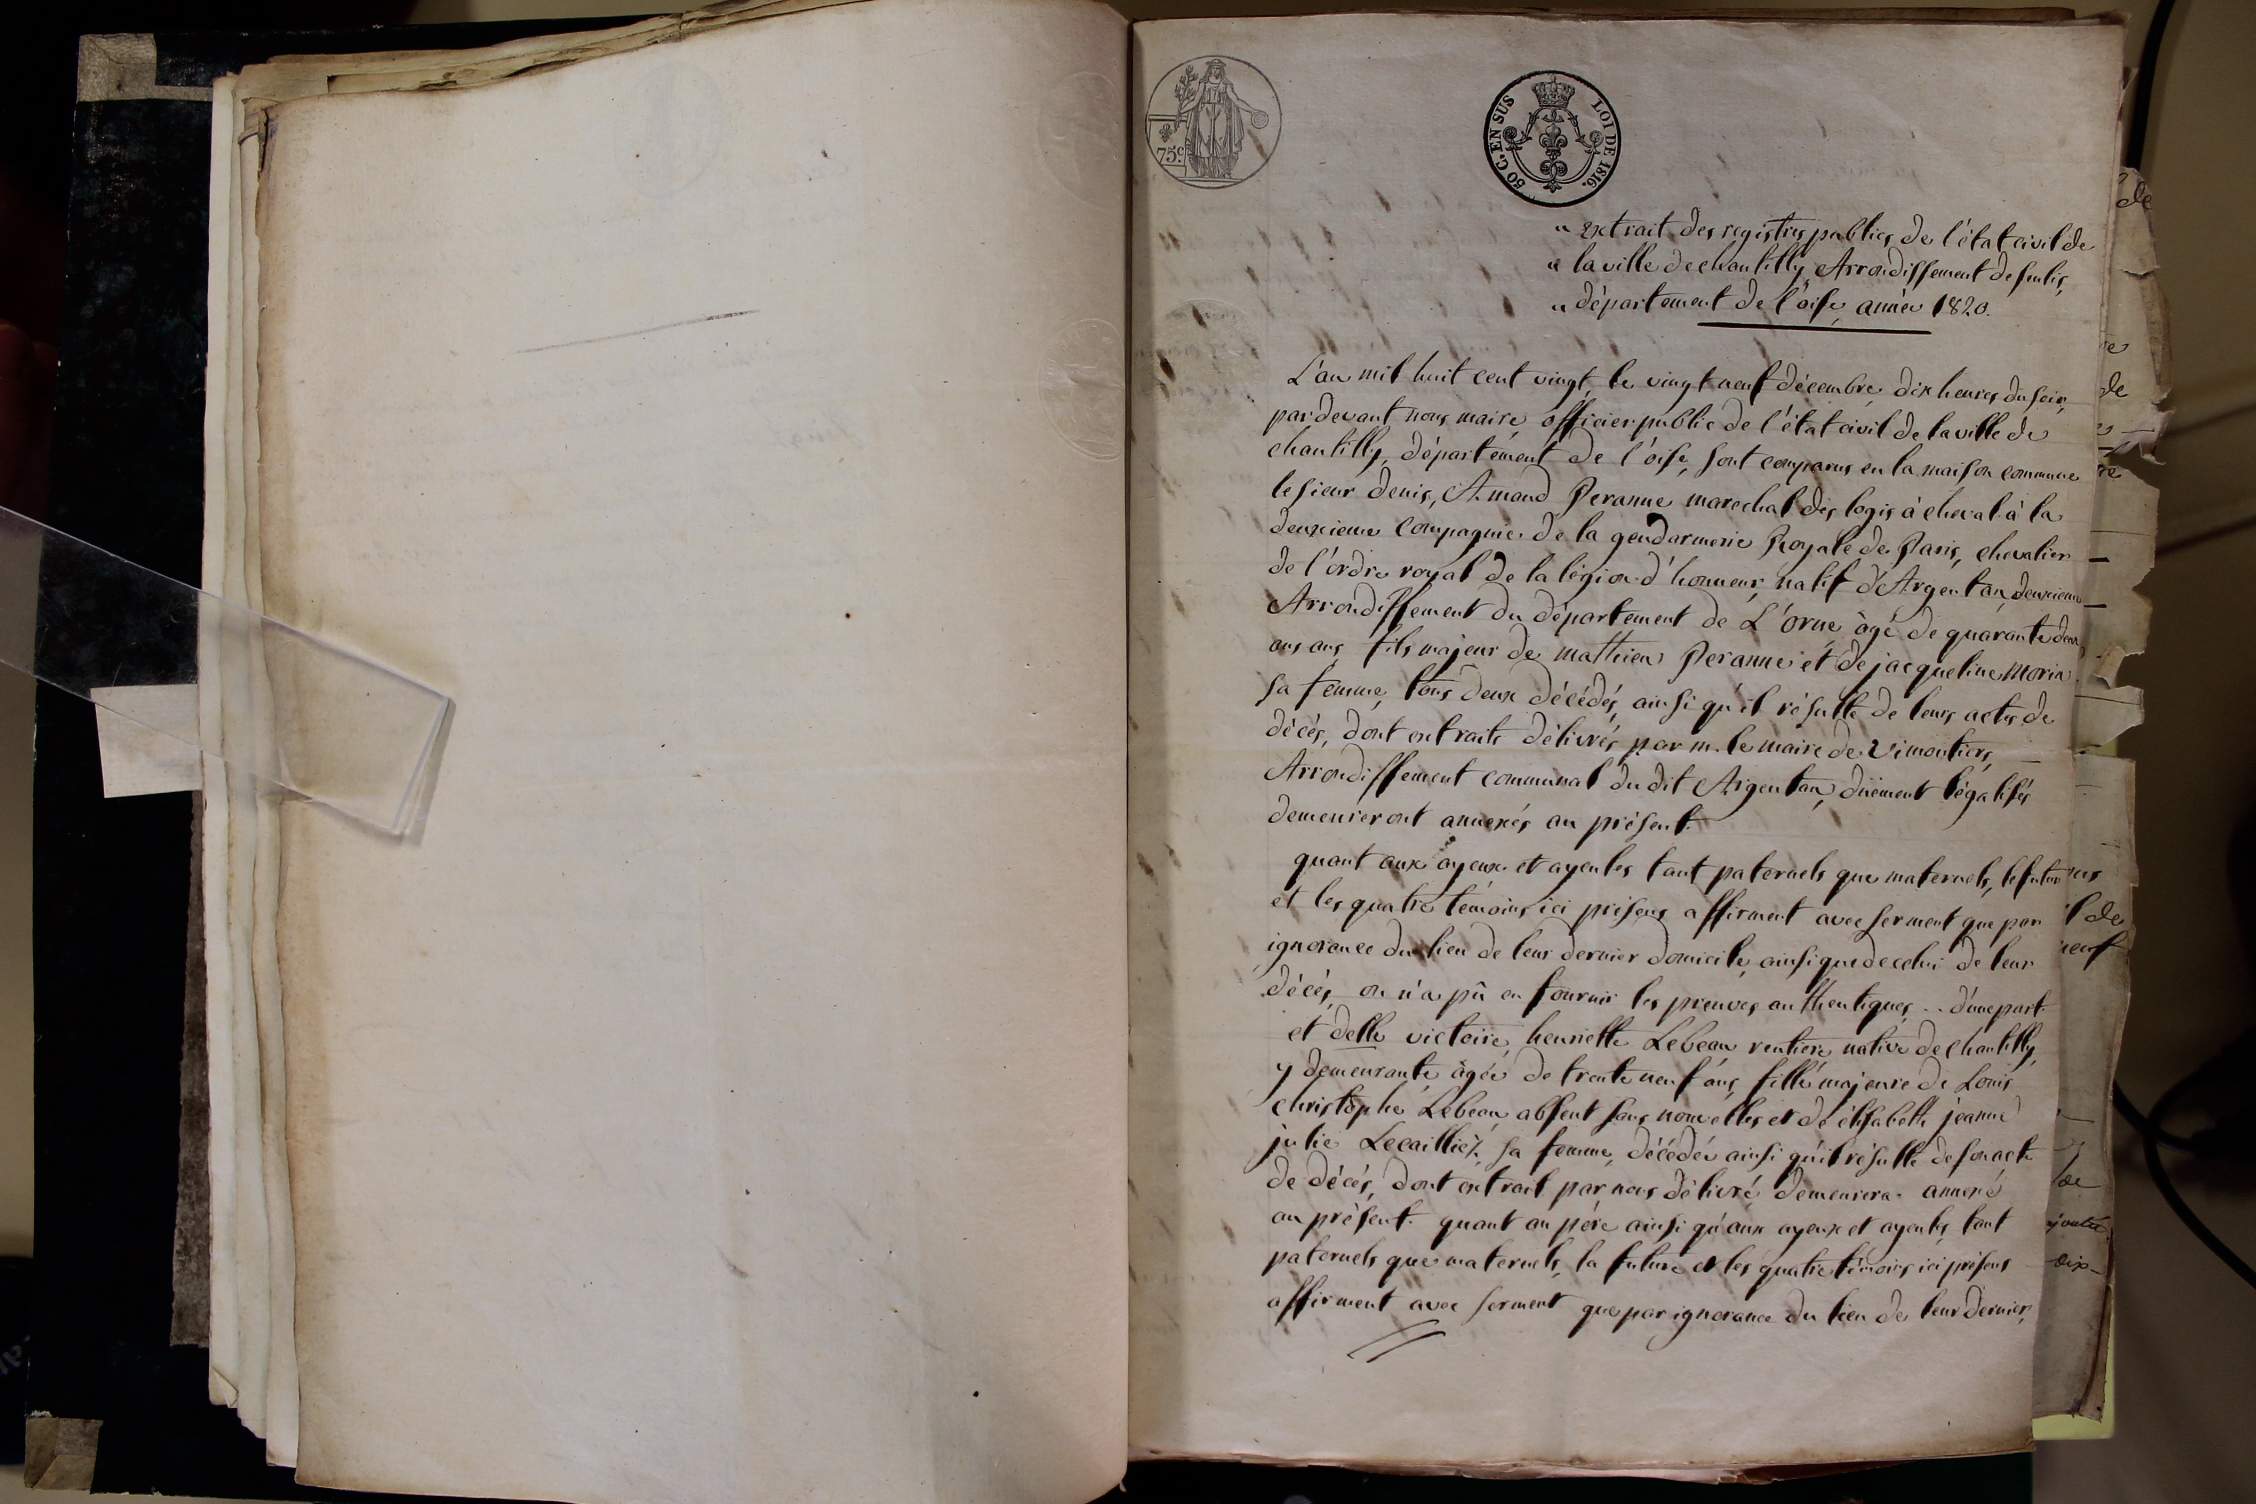 75.c
50 C. EN SUS LOI DE 1816.
" extrait des registres publics de l'état civil de
" la ville de chantilly Arrondissement de senlis,
" département de l'oise, année 1820.
L'an mil huit cent vingt, le vingt neuf décembre, dix heures du soir,
par devant nous maire, officier public de l'état civil de la ville de
chantilly, département de l'oise, sont comparus en la maison commune
le sieur denis, Amand Peranne marechal des logis à cheval à la
deuxieme compagnie de la gendarmerie Royale de Paris, chevalier
de l'ordre royal de la légion d'honneur, natif d'Argentan, deuxieme
Arrondissement du département de L'orne âgé de quarante deux
ans, fils majeur de mathieu Peranne et de jacqueline Morin
sa femme, tous deux décédés, ainsi qu'il résulte de leurs actes de
décès, dont extraits délivrés par m. le maire de Vimoutiers,
Arrondissement communal du dit Argentan, dûement légalisés
demeureront annexés au présent.
quant aux ayeux et ayeules tant paternels que maternels, le futur
et les quatre témoins ici présens affirment avec serment que par
ignorance du lieu de leur dernier domicile, ainsi que de celui de leur
décès, on n'a pû en fournir les preuves authentiques, .. d'une part.
et delle victoire, henriette Lebeau rentiere, native de chantilly,
y demeurante, âgée de trente neuf ans, fille majeure de Louis
christophe Lebeau absent sans nouvelles et de élisabeth jeanne
julie Lecailliez sa femme, décédée ainsi qu'il résulte de son acte
de décès, dont extrait par nous délivré demeurera annexé
au présent. quant au père ainsi qu'aux ayeux et ayeules, tant
paternels que maternels, la future et les quatre témoins ici présens
affirment avec serment que par ignorance du lieu de leur dernier